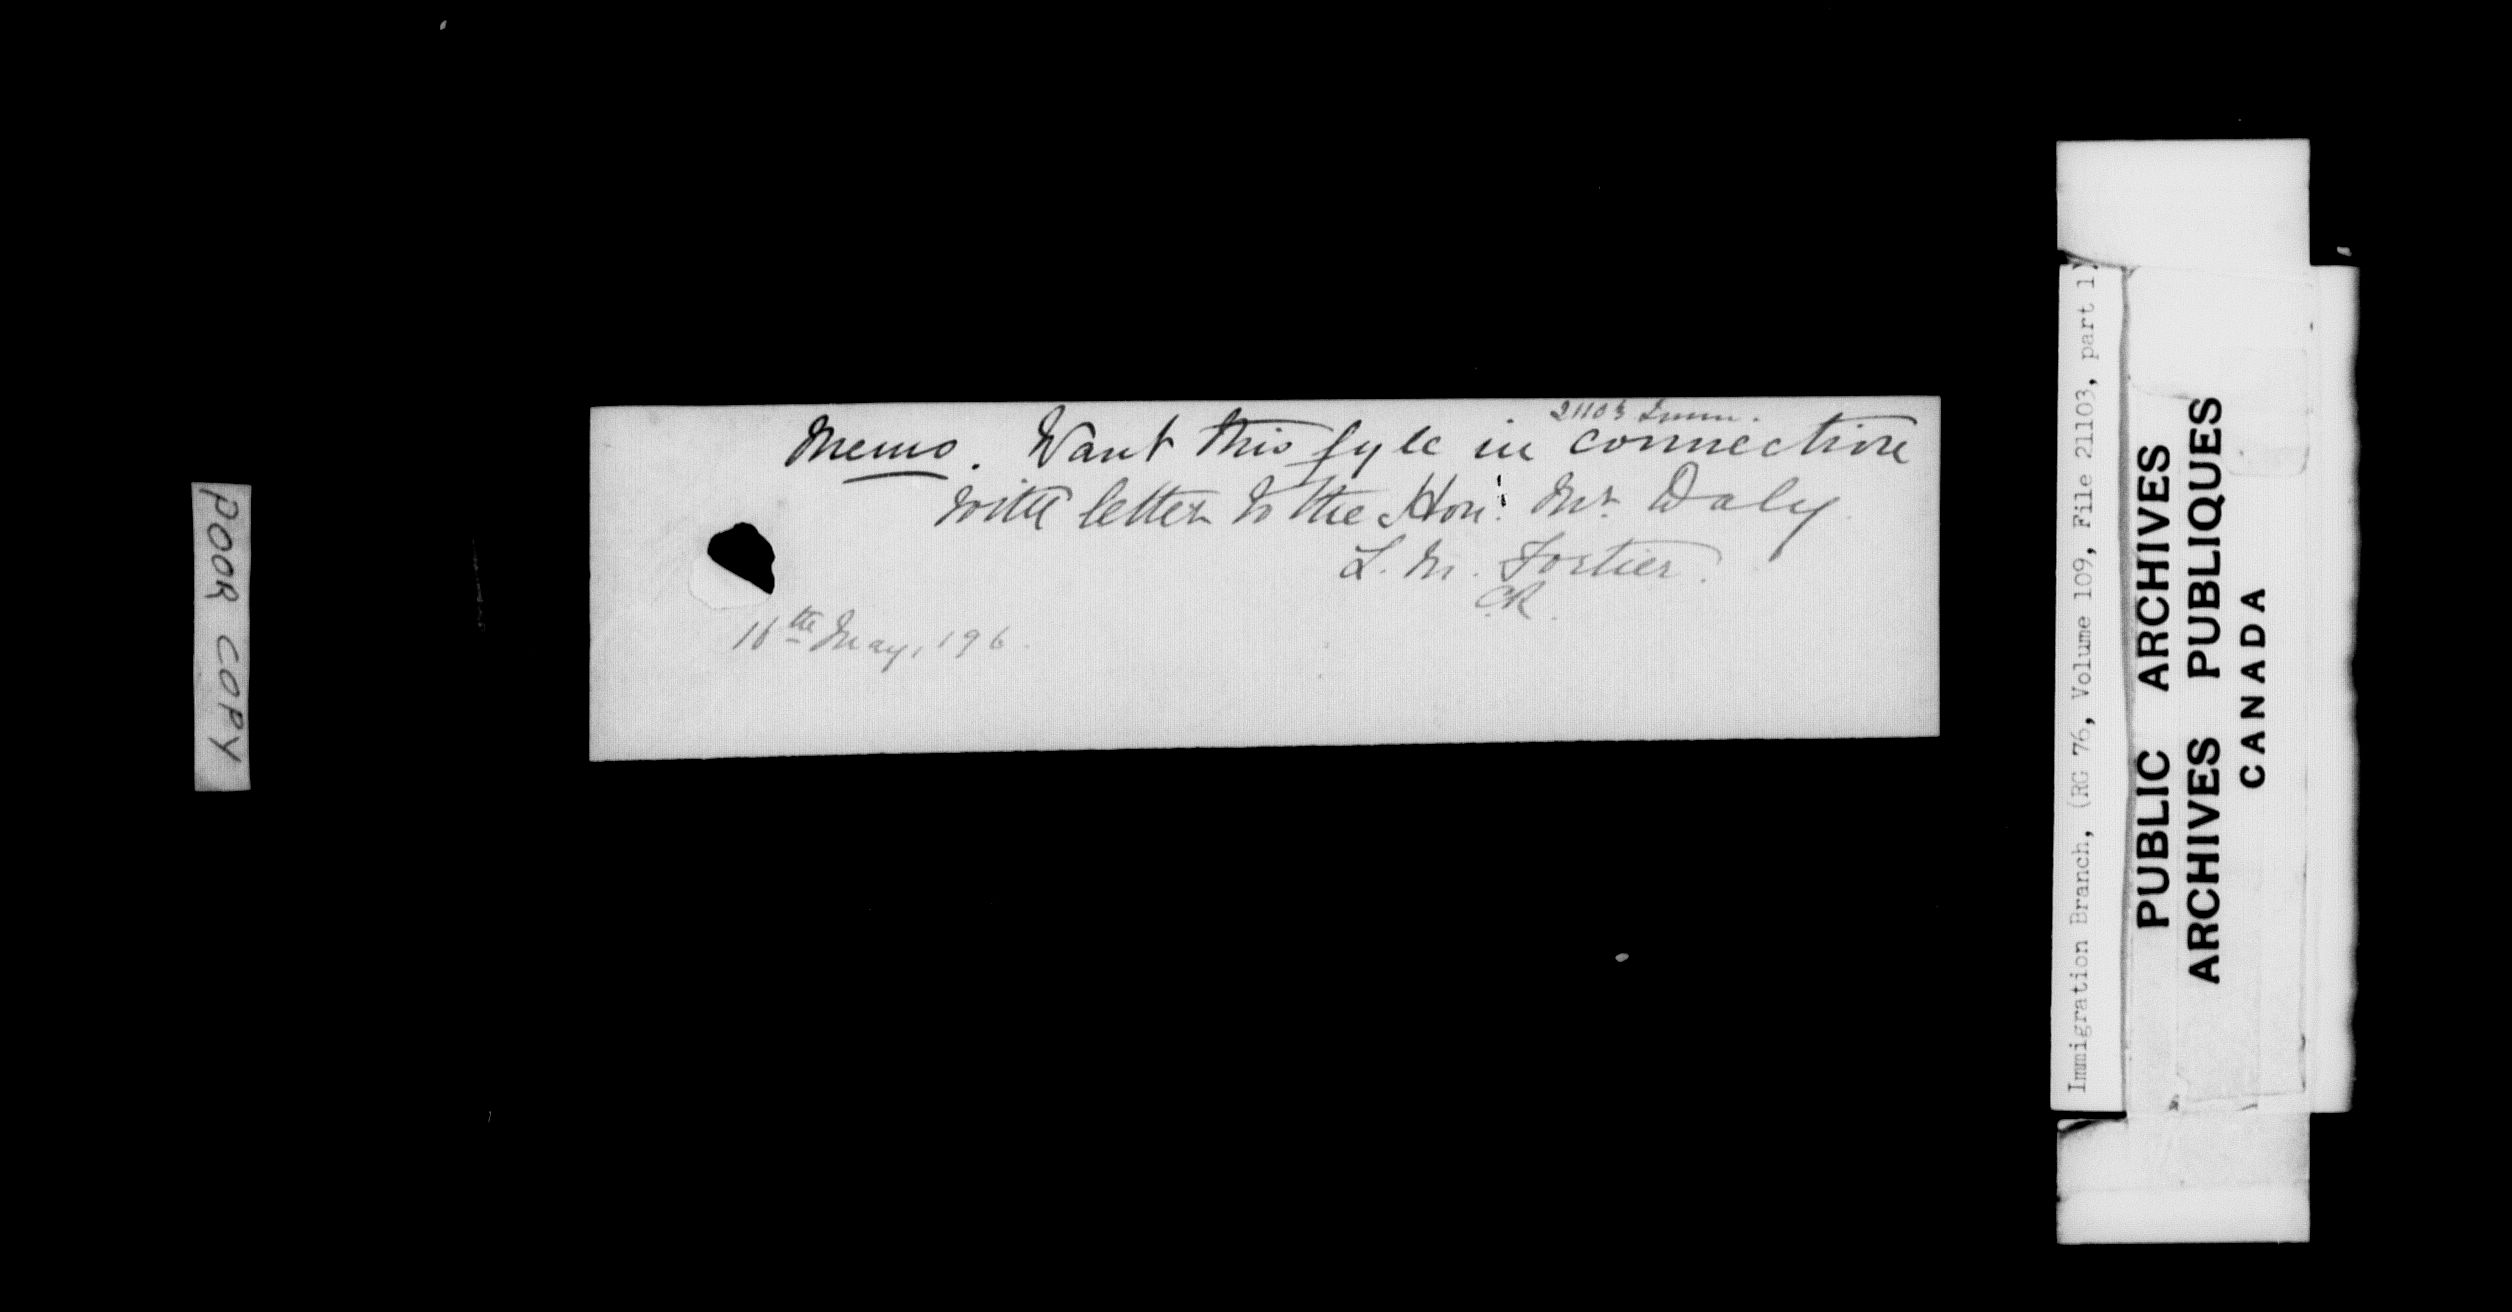 POOR COPY
21103 Imm.
Memo. Want this fyle in connection
with letter to the Hon. Mr. Daly
L. M. Fortier.
CR.
16th May, 196.
Immigration Branch, (RG 76, Volume 109, File 21103, part 1)
PUBLIC ARCHIVES
ARCHIVES PUBLIQUES
CANADA